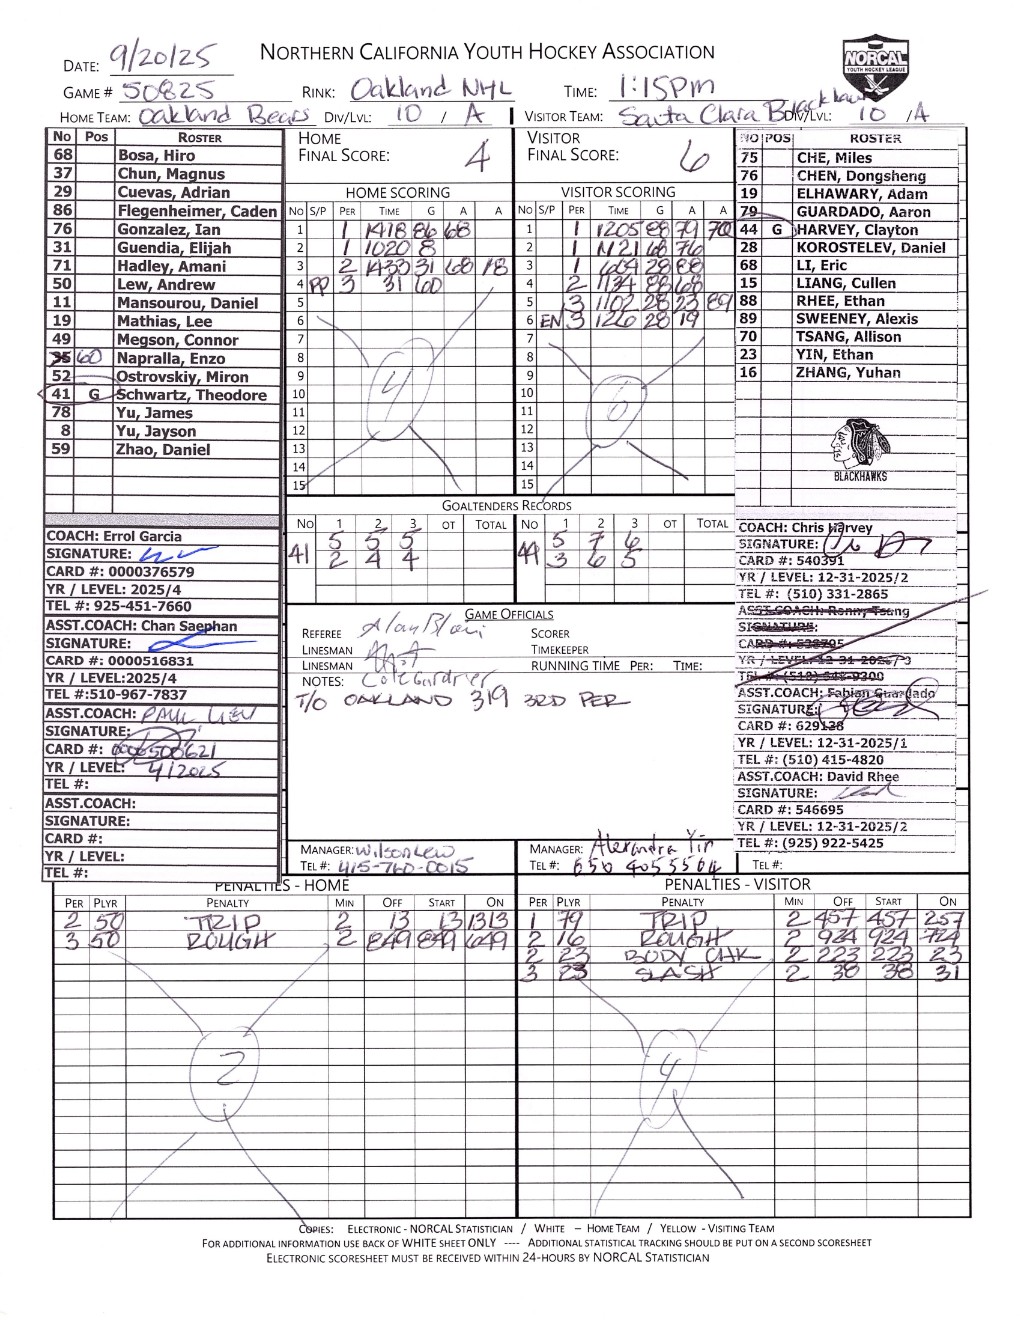 NORTHERN CALIFORNIA YOUTH HOCKEY ASSOCIATION
NORCAL
YOUTH HOCKEY LEAGUE
DATE: 9/20/25
GAME # 50825 RINK: Oakland NHL TIME: 1:15pm
HOME TEAM: Oakland Bears DIV/LVL: 10 / A VISITOR TEAM: Santa Clara Blackhawks DIV/LVL: 10 /A
No Pos ROSTER
68 Bosa, Hiro
37 Chun, Magnus
29 Cuevas, Adrian
86 Flegenheimer, Caden
76 Gonzalez, Ian
31 Guendia, Elijah
71 Hadley, Amani
50 Lew, Andrew
11 Mansourou, Daniel
19 Mathias, Lee
49 Megson, Connor
35 60 Napralla, Enzo
52 Ostrovskiy, Miron
41 G Schwartz, Theodore
78 Yu, James
8 Yu, Jayson
59 Zhao, Daniel
COACH: Errol Garcia
SIGNATURE:
CARD #: 0000376579
YR / LEVEL: 2025/4
TEL #: 925-451-7660
ASST.COACH: Chan Saephan
SIGNATURE:
CARD #: 0000516831
YR / LEVEL:2025/4
TEL #:510-967-7837
ASST.COACH: PAUL LIEU
SIGNATURE:
CARD #: 0000500621
YR / LEVEL: 4/2025
TEL #:
ASST.COACH:
SIGNATURE:
CARD #:
YR / LEVEL:
TEL #:
HOME
FINAL SCORE: 4
HOME SCORING
NO S/P PER TIME G A A
1 1 1418 86 68
2 1 1020 8
3 2 1433 31 68 78
4 PP 3 31 60
5
6
7
8
9
10
11
12
13
14
15
4
VISITOR
FINAL SCORE: 6
VISITOR SCORING
NO S/P PER TIME G A A
1 1 1205 88 79 70
2 1 1121 68 76
3 1 609 28 88
4 2 1134 88 68
5 3 1102 28 23 89
6 EN 3 1220 28 19
7
8
9
10
11
12
13
14
15
6
GOALTENDERS RECORDS
NO 1 2 3 OT TOTAL NO 1 2 3 OT TOTAL
41 5 5 5 44 5 7 6
2 4 4 3 6 5
GAME OFFICIALS
REFEREE SCORER
LINESMAN TIMEKEEPER
LINESMAN RUNNING TIME PER: TIME:
NOTES: Cole Gardner
T/O OAKLAND 319 3RD PER
MANAGER: Wilson Lew MANAGER: Alexandra Yin
TEL #: 415-760-0015 TEL #: 650 4055504 TEL #:
NO POS ROSTER
75 CHE, Miles
76 CHEN, Dongsheng
19 ELHAWARY, Adam
79 GUARDADO, Aaron
44 G HARVEY, Clayton
28 KOROSTELEV, Daniel
68 LI, Eric
15 LIANG, Cullen
88 RHEE, Ethan
89 SWEENEY, Alexis
70 TSANG, Allison
23 YIN, Ethan
16 ZHANG, Yuhan
BLACKHAWKS
COACH: Chris Harvey
SIGNATURE:
CARD #: 540391
YR / LEVEL: 12-31-2025/2
TEL #: (510) 331-2865
ASST.COACH: Ronny Tsang
SIGNATURE:
YR / LEVEL: 12-31-2026/3
ASST.COACH: Fabian Guardado
SIGNATURE:
CARD #: 629128
YR / LEVEL: 12-31-2025/1
TEL #: (510) 415-4820
ASST.COACH: David Rhee
SIGNATURE:
CARD #: 546695
YR / LEVEL: 12-31-2025/2
TEL #: (925) 922-5425
PENALTIES - HOME
PER PLYR PENALTY MIN OFF START ON
2 50 TRIP 2 13 13 1313
3 50 ROUGH 2 849 849 649
2
PENALTIES - VISITOR
PER PLYR PENALTY MIN OFF START ON
1 79 TRIP 2 457 457 257
2 16 ROUGH 2 924 924 724
2 23 BODY CHK 2 223 223 23
3 23 SLASH 2 38 38 31
4
COPIES: ELECTRONIC - NORCAL STATISTICIAN / WHITE – HOME TEAM / YELLOW - VISITING TEAM
FOR ADDITIONAL INFORMATION USE BACK OF WHITE SHEET ONLY ---- ADDITIONAL STATISTICAL TRACKING SHOULD BE PUT ON A SECOND SCORESHEET
ELECTRONIC SCORESHEET MUST BE RECEIVED WITHIN 24-HOURS BY NORCAL STATISTICIAN